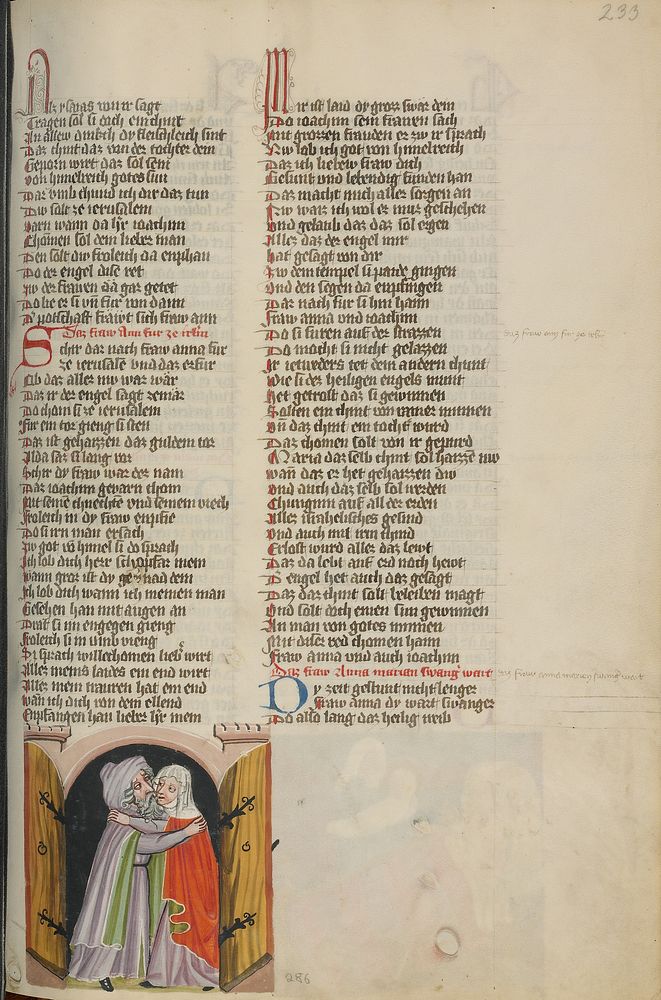 233
Als ysayas von ir sagt
Tragen sol si doch ein chint
In allew dinkch dy fleischleich sint
Daz chint daz von der tochter dein
Geporn wirt daz sol sein
Von himelreich gotes sun
Dar umb chund ich dir daz tun
Dw solt ze ierusalem
Varn wann da her ioachim
Chömen sol dein lieber man
Den solt dw froleich da enphan
Do der engel dise ret
Zw der frawen da gar getet
Do lie er si vnd fur von dann
Der potschaft frawt sich fraw ann
Daz fraw Ann fur ze irlm
Schir dar nach fraw anna fur
ze ierusale vnd daz erfur
Ob daz aller nw war wär
Daz ir der engel sagt ze mär
Do chom si ze ierusalem
Für ein tor gieng si sten
Daz ist gehaizzen daz guldein tor
Alda saz si lang vor
Schir dy fraw war der nam
Daz ioachim gevarn chom
Mit seine chnechte vnd seinem viech
Froleich in dy fraw enpfie
Do si irn man ersach
Zw got vo himel si do sprach
Ich lob dich herr schepfär mein
Wann groz ist dy genad dein
Ich lob dich wann ich meinen man
Gesehen han mit augen an
Drat si im engegen gieng
Froleich si in umb vieng
Si sprach willechomen lieber wirt
Alles meins laides ein end wirt
Alles mein trauren hat ein end
Wan ich dich von dem ellend
Enpfangen han lieber her mein
Mir ist laid dy groz swär dein
Do ioachim sein frawen sach
Mit grozzen frauden er zw ir sprach
Nw lob ich got von himelreich
Daz ich liebew fraw dich
Gesunt vnd lebendig funden han
Daz macht mich aller sorgen an
Nw waz ich wol er mus geschehen
Vnd gelaub daz daz sol ergen
Alles daz der engel mir
hat gesagt von dir
Zw dem tempel si paide gingen
Vnd den segen da enpfingen
Dar nach fur si hin haim
Fraw anna vnd ioachim
Do si furen auf der strazzen
Do mocht si nicht gelazzen
Ir ietweders tet dem andern chunt
Wie si der heiligen engels munt
Het getrost daz si gewinnen
Solten ein chint von irner minnen
Vnd daz chint ein tochter wurd
Daz chomen solt von ir gepurd
Maria daz selb chint sol haizze nw
Wann daz er het gehaizzen dw
Vnd auch daz selb sol werden
Chunginn auf all der erden
Alles israhelisches gesind
Vnd auch mit irm chind
Erlost wurd alles daz lewt
Daz da lebt auf erd noch hewt
Der engel het auch daz gesagt
Daz daz chint solt beleiben magt
Vnd solt doch einen sun gewinnen
An man von gotes minnen
Mit diser red chomen haim
Fraw anna vnd auch ioachim
Daz fraw Anna marian swanger wart
Dy zeit gestunt nicht lenger
Fraw anna dy wart swanger
Do also lang daz heilig weib
daz fraw ann fur ze irlm
daz fraw anna marien swanger wart
286